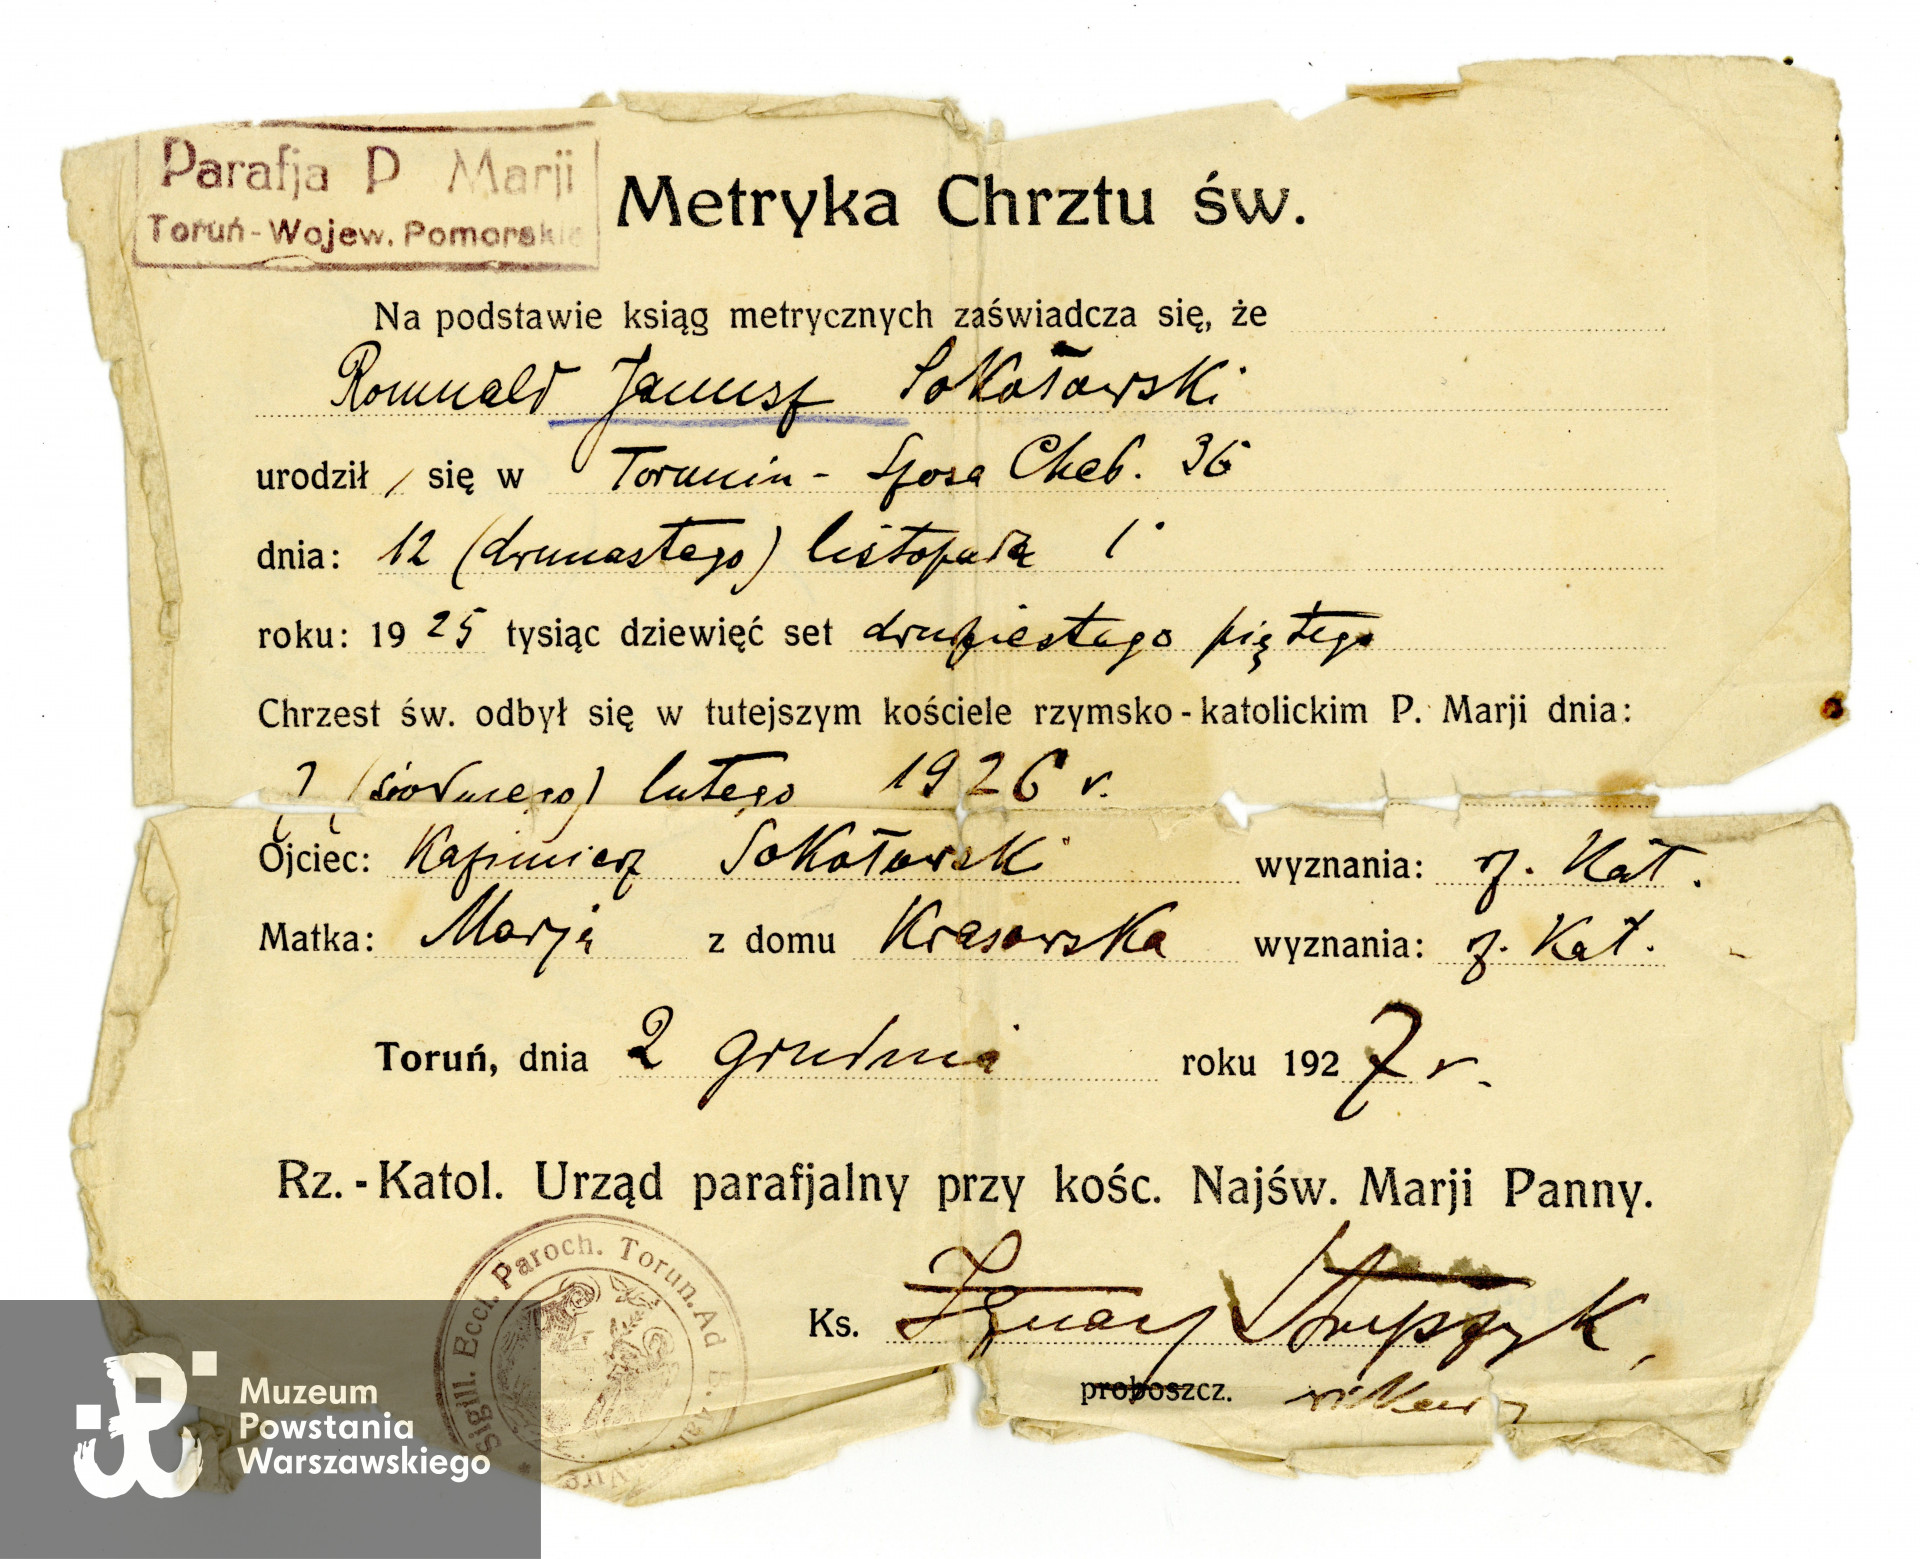 Parafja P Marji
Toruń-Wojew. Pomorskie
Metryka Chrztu św.
Na podstawie ksiąg metrycznych zaświadcza się, że
Romuald Janusz Sokołowski
urodził się w Toruniu - Szosa Cheł. 36
dnia: 12 (dwunastego) listopada
roku: 1925 tysiąc dziewięć set dwudziestego piątego
Chrzest św. odbył się w tutejszym kościele rzymsko-katolickim P. Marji dnia:
7 (siódmego) lutego 1926 r.
Ojciec: Kazimierz Sokołowski wyznania: rz. Kat.
Matka: Marja z domu Krasowska wyznania: rz. Kat.
Toruń, dnia 2 grudnia roku 1927 r.
Rz.-Katol. Urząd parafjalny przy kośc. Najśw. Marji Panny.
Ks. Ignacy
proboszcz. wikary
Sigill. Eccl. Paroch. Torun. Ad B. Mar. Virg.
Muzeum
Powstania
Warszawskiego